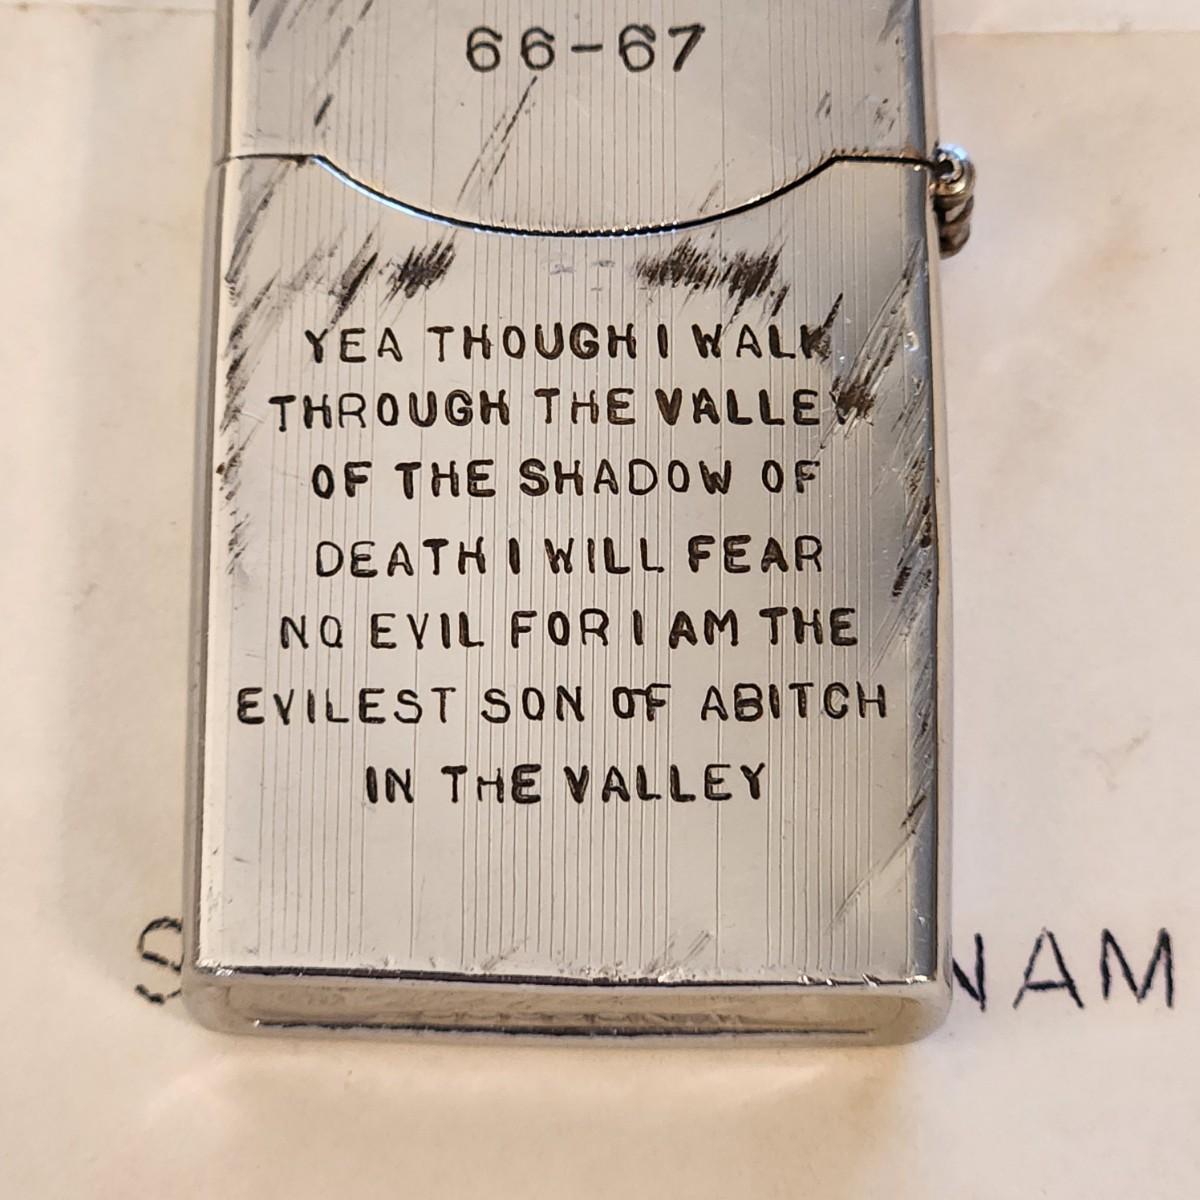 66-67
YEA THOUGH I WALK
THROUGH THE VALLEY
OF THE SHADOW OF
DEATH I WILL FEAR
NO EVIL FOR I AM THE
EVILEST SON OF ABITCH
IN THE VALLEY
NAM